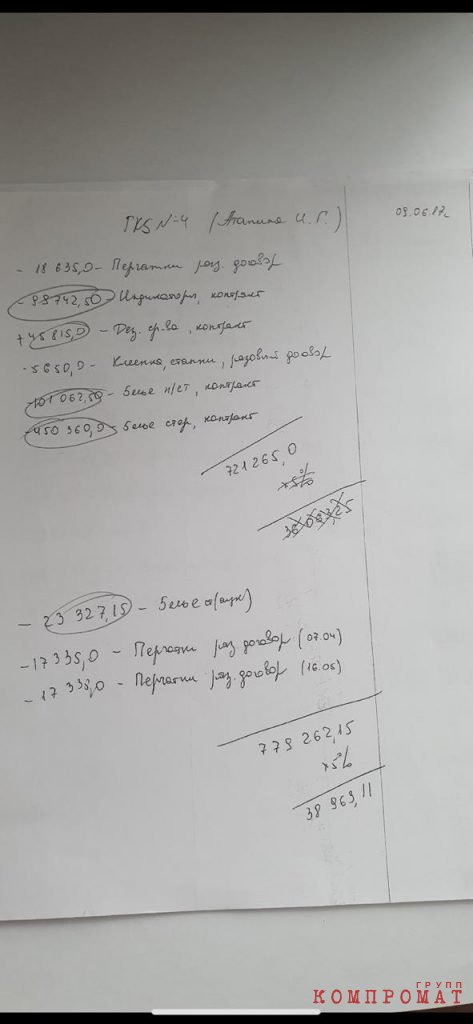 ГКБ №4 (Агапина И.Г.)
09.06.17г
- 18 635,0 - Перчатки раз. договор
- 98742,50 - Индикаторы, контракт
+ 45 815,0 - Дез. ср-ва, контракт
- 5650,0 - Клеенка, станки, разовый договор
- 101 062,50 - Белье н/ст, контракт
- 450 360,0 - Белье стер, контракт
721 265,0
x 5%
36 063,25
- 23 327,15 - Белье
- 17 335,0 - Перчатки раз. договор (07.04)
- 17 335,0 - Перчатки раз. договор (16.05)
779 262,15
x 5%
38 963,11
ГРУПП
КОМПРОМАТ